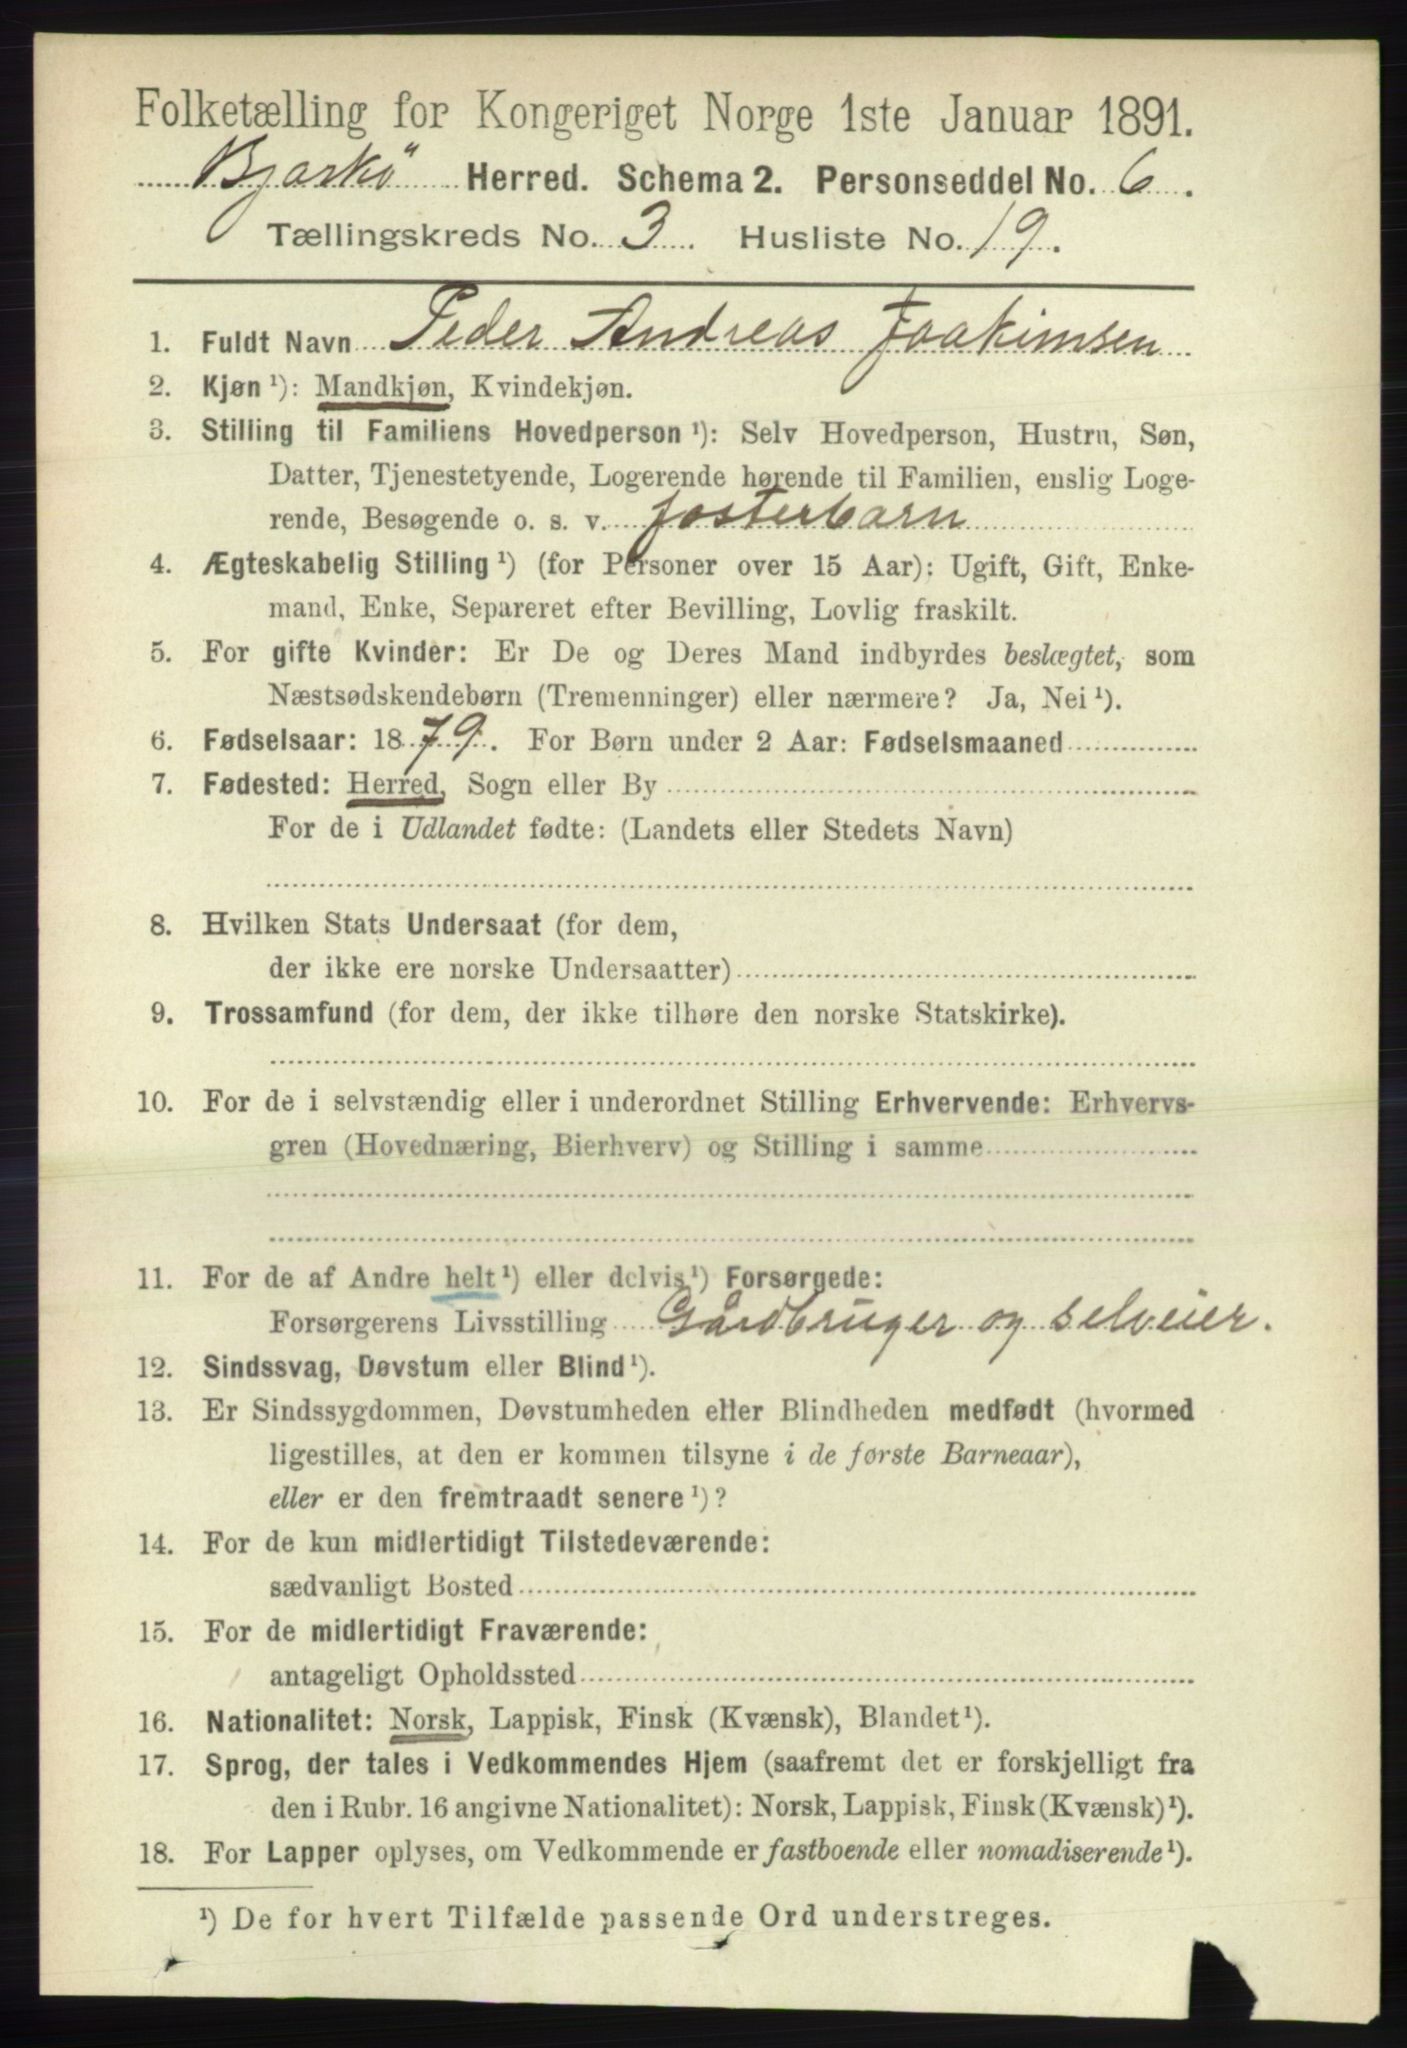 Folketælling for Kongeriget Norge 1ste Januar 1891.
Bjarkö Herred. Schema 2. Personseddel No. 6.
Tællingskreds No. 3. Husliste No. 19.
1. Fuldt Navn Peder Andreas Joakimsen
2. Kjøn ¹): Mandkjøn, Kvindekjøn.
3. Stilling til Familiens Hovedperson ¹): Selv Hovedperson, Hustru, Søn,
Datter, Tjenestetyende, Logerende hørende til Familien, enslig Loge-
rende, Besøgende o. s. v. fosterbarn
4. Ægteskabelig Stilling ¹) (for Personer over 15 Aar): Ugift, Gift, Enke-
mand, Enke, Separeret efter Bevilling, Lovlig fraskilt.
5. For gifte Kvinder: Er De og Deres Mand indbyrdes beslægtet, som
Næstsødskendebørn (Tremenninger) eller nærmere? Ja, Nei ¹).
6. Fødselsaar: 1879. For Børn under 2 Aar: Fødselsmaaned
7. Fødested: Herred, Sogn eller By
For de i Udlandet fødte: (Landets eller Stedets Navn)
8. Hvilken Stats Undersaat (for dem,
der ikke ere norske Undersaatter)
9. Trossamfund (for dem, der ikke tilhøre den norske Statskirke).
10. For de i selvstændig eller i underordnet Stilling Erhvervende: Erhvervs-
gren (Hovednæring, Bierhverv) og Stilling i samme
11. For de af Andre helt ¹) eller delvis ¹) Forsørgede:
Forsørgerens Livsstilling Gårdbruger og selveier.
12. Sindssvag, Døvstum eller Blind ¹).
13. Er Sindssygdommen, Døvstumheden eller Blindheden medfødt (hvormed
ligestilles, at den er kommen tilsyne i de første Barneaar),
eller er den fremtraadt senere ¹)?
14. For de kun midlertidigt Tilstedeværende:
sædvanligt Bosted
15. For de midlertidigt Fraværende:
antageligt Opholdssted
16. Nationalitet: Norsk, Lappisk, Finsk (Kvænsk), Blandet ¹).
17. Sprog, der tales i Vedkommendes Hjem (saafremt det er forskjelligt fra
den i Rubr. 16 angivne Nationalitet): Norsk, Lappisk, Finsk (Kvænsk) ¹).
18. For Lapper oplyses, om Vedkommende er fastboende eller nomadiserende ¹).
¹) De for hvert Tilfælde passende Ord understreges.